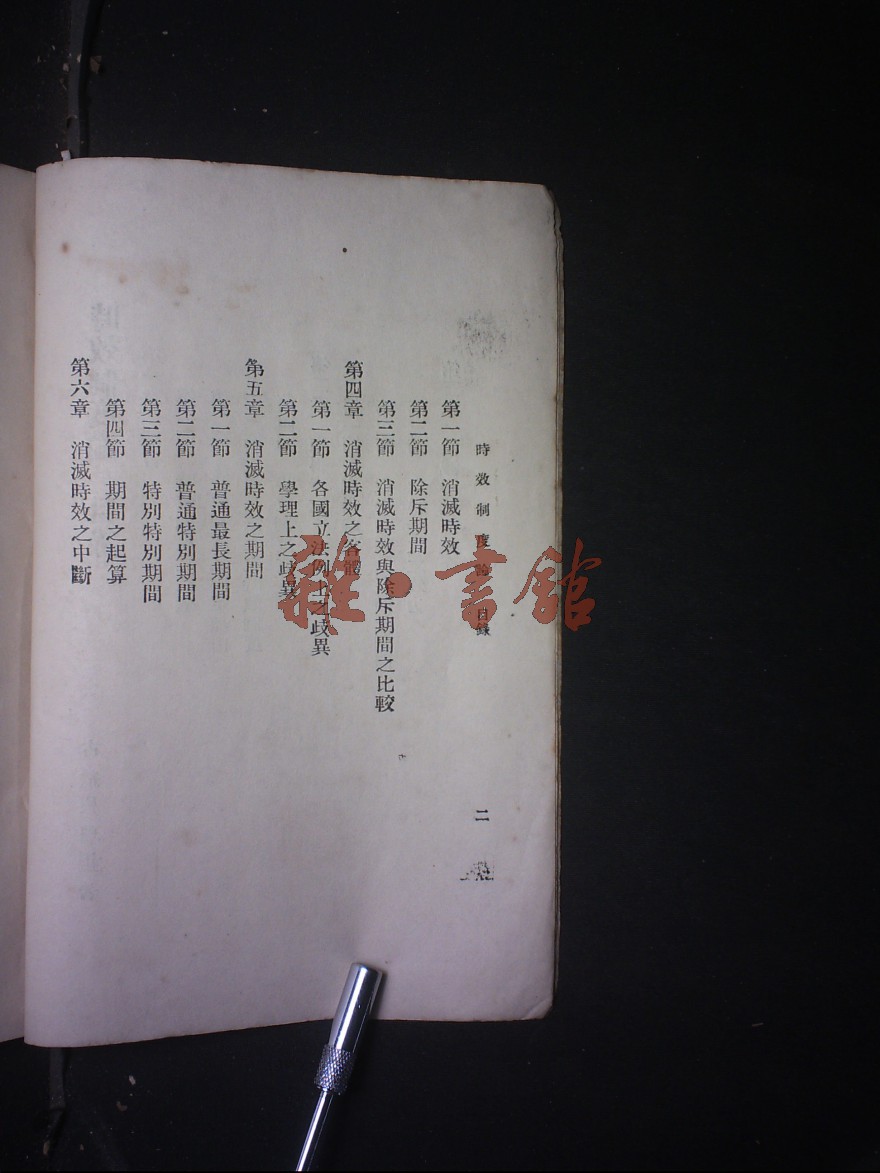 時效制度論 目錄 二
第一節 消滅時效
第二節 除斥期間
第三節 消滅時效與除斥期間之比較
第四章 消滅時效之客體
第一節 各國立法例上之歧異
第二節 學理上之歧異
第五章 消滅時效之期間
第一節 普通最長期間
第二節 普通特別期間
第三節 特別特別期間
第四節 期間之起算
第六章 消滅時效之中斷
雜·書館